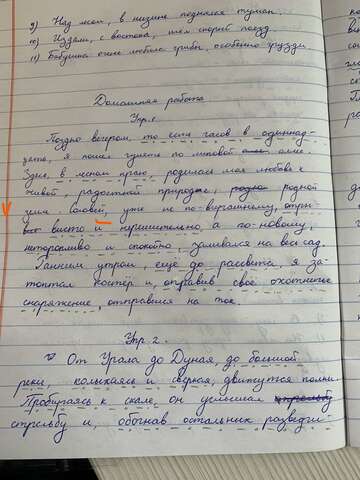 9) Над лесом, в низине поднялся туман.
10) Издали, с востока, шёл скорый поезд.
11) Бабушка очень любила грибы, особенно грузди.
Домашняя работа
Упр.1.
Поздно вечером, то есть часов в одиннад-
цать, я пошел гулять по липовой аллее.
Здесь, в лесном краю, родилась моя любовь к
живой, радостной природе, родной
земли. Соловей, уже не по-вечернему, отры-
висто и нерешительно, а по-новому,
неторопливо и спокойно, заливался на весь сад.
Ранним утром, ещё до рассвета, я за-
топтал костер и, отправив свое охотничье
снаряжение, отправился на ток.
Упр. 2.
От Урала до Дуная, до большой
реки, колыхаясь и сверкая, движутся полки.
Пробираясь к скале, он услышал
стрельбу и, обогнав остальных разведчи-